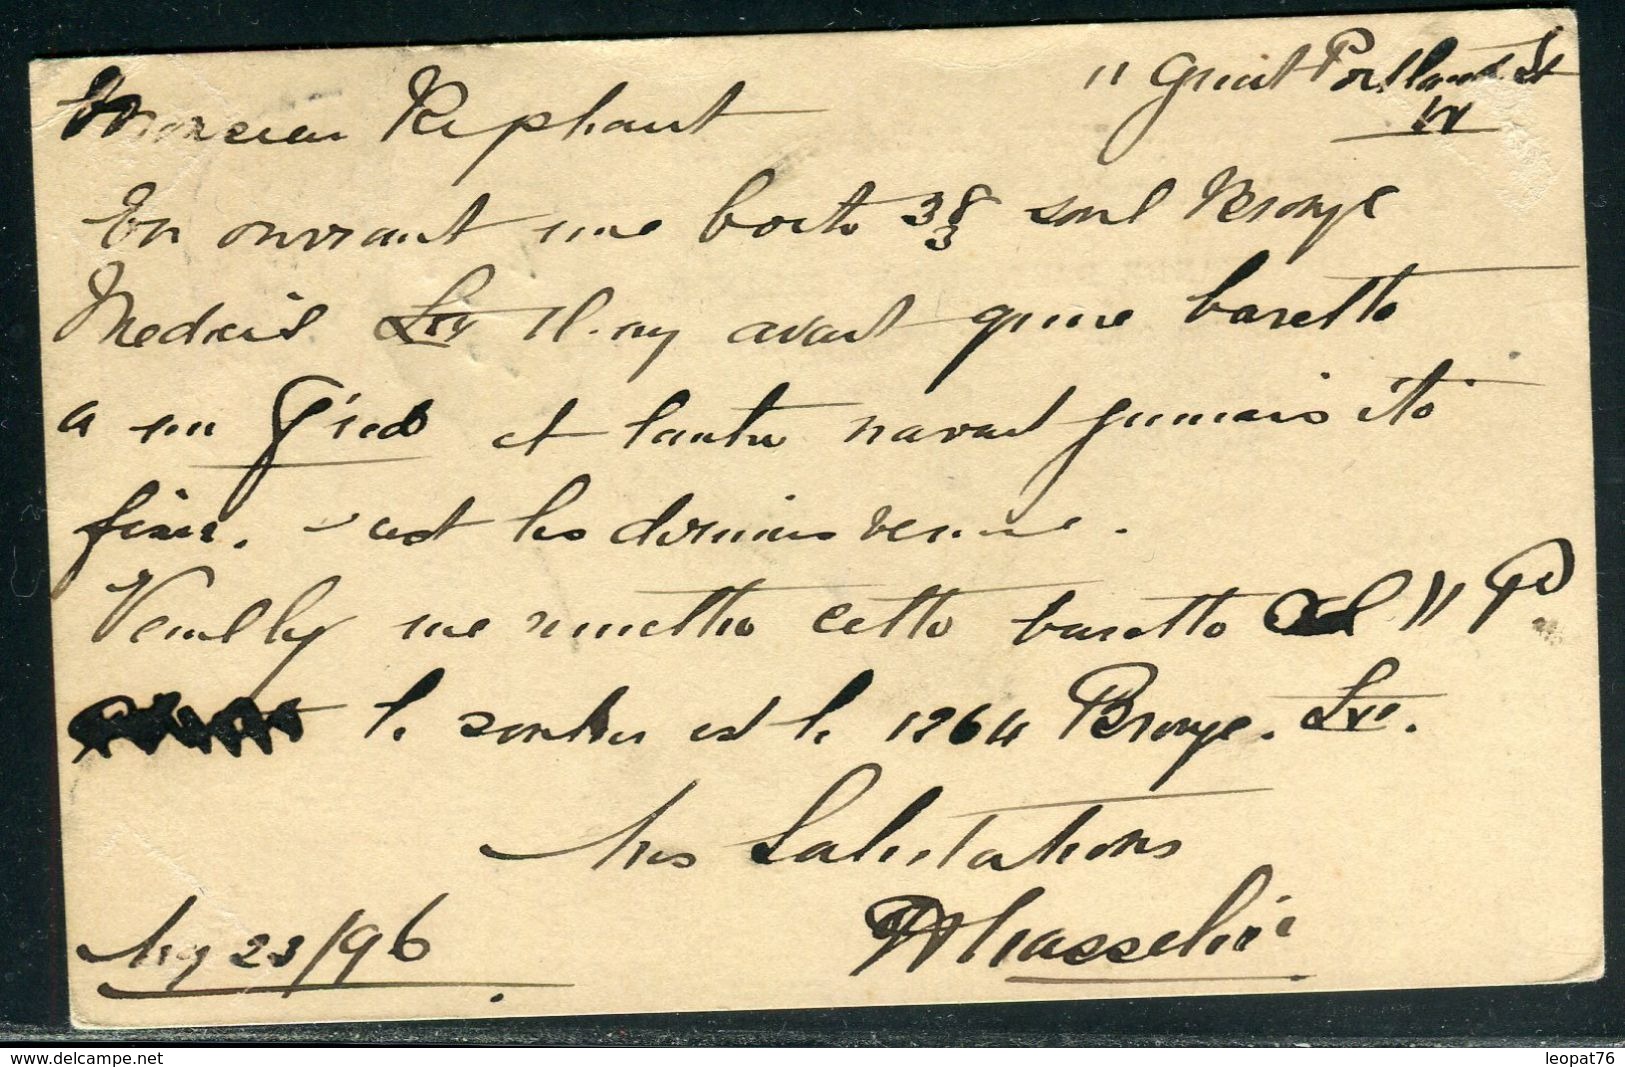 11 Great Portland St
W
Monsieur Riphaut
En ouvrant une boite 38/3 soul Bronze
Medail Lrv Il.ny avait qune baretto
a un Pied et lautre navait jumais ito
fixer. cest les derniers venue.
Veuilly me remettre cetto baretto 11 Po
le soulier est le 1264 Bronze. Lrv.
Mes Salutations
My 23/96
leopat76